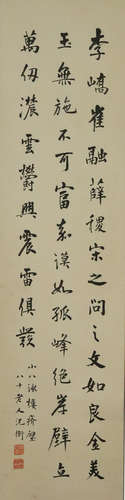 李嶠崔融薛稷宋之問之文如良金美
玉無施不可富嘉謨如孤峰絕岸壁立
萬仞濃雲鬱興震雷俱發
八詠樓齋壁
八十老人沈衛